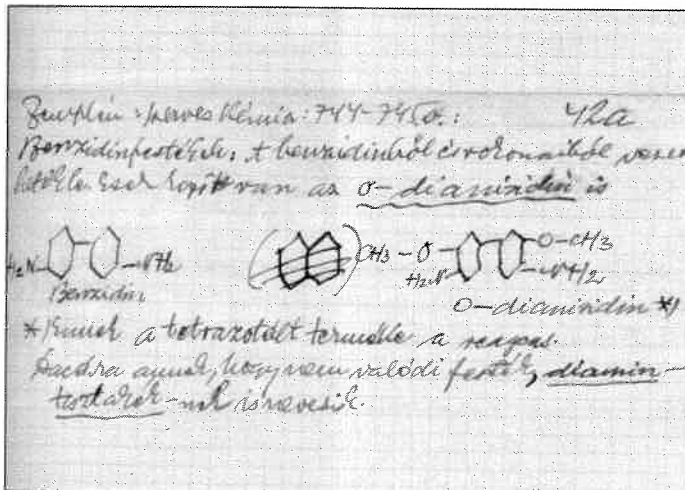 Zemplén: Szerves Kémia: 744-745 o.: 42a
Benzidinfestékek: A benzidinből és rokonaiból
Ezek között van az o-dianizidin is
H2N- -NH2 CH3-O- -O-CH3
H2N -NH2
Benzidin
o-dianizidin *)
* Ennek a tetrazotált terméke a reagens.
annak, hogy nem valódi festék, diamin-
festékek-nek is nevezik.